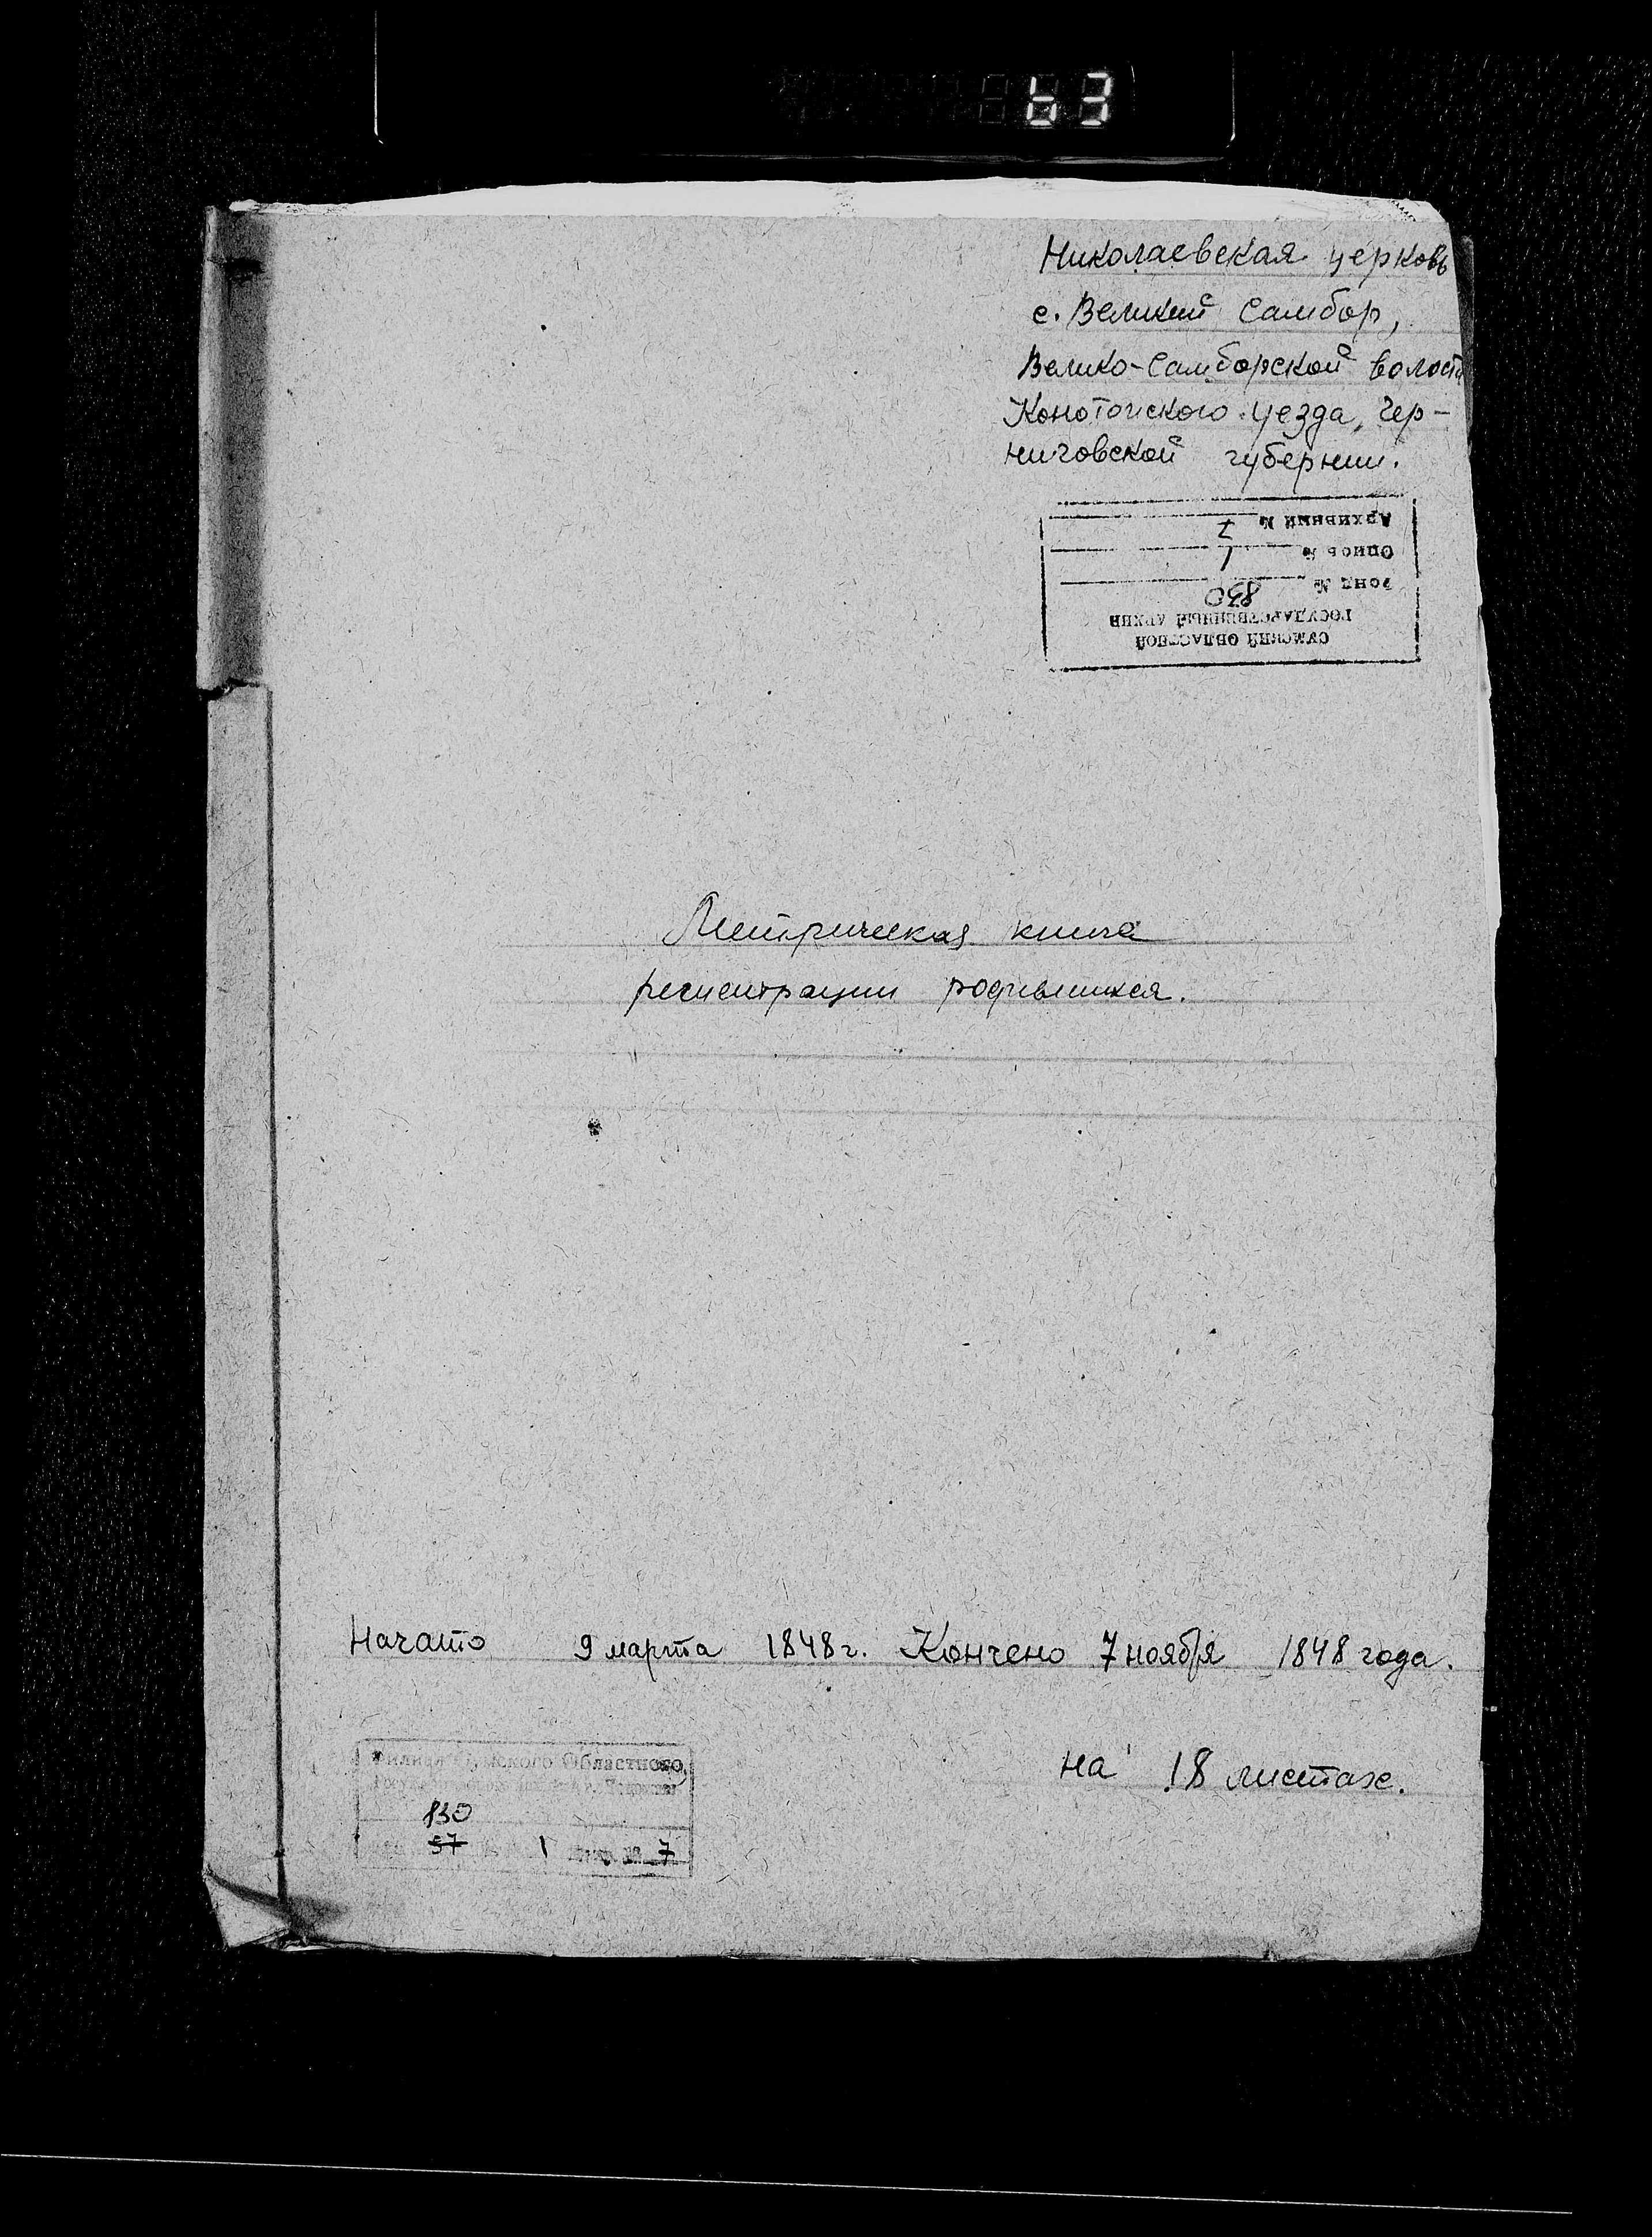 Николаевская церковь
с. Великий Самбор,
Велико-Самборской волости
Конотопского уезда, Чер-
ниговской губернии.
СУМСКИЙ ОБЛАСТНОЙ
ГОСУДАРСТВЕННЫЙ АРХИВ
Фонд № 830
Опись № 1
Архивный № 7
Метрическая книга
регистрации родившихся.
Начато 9 марта 1848 г. Кончено 7 ноября 1848 года.
на 18 листах.
Филиал Сумского Областного
830
57 1 7